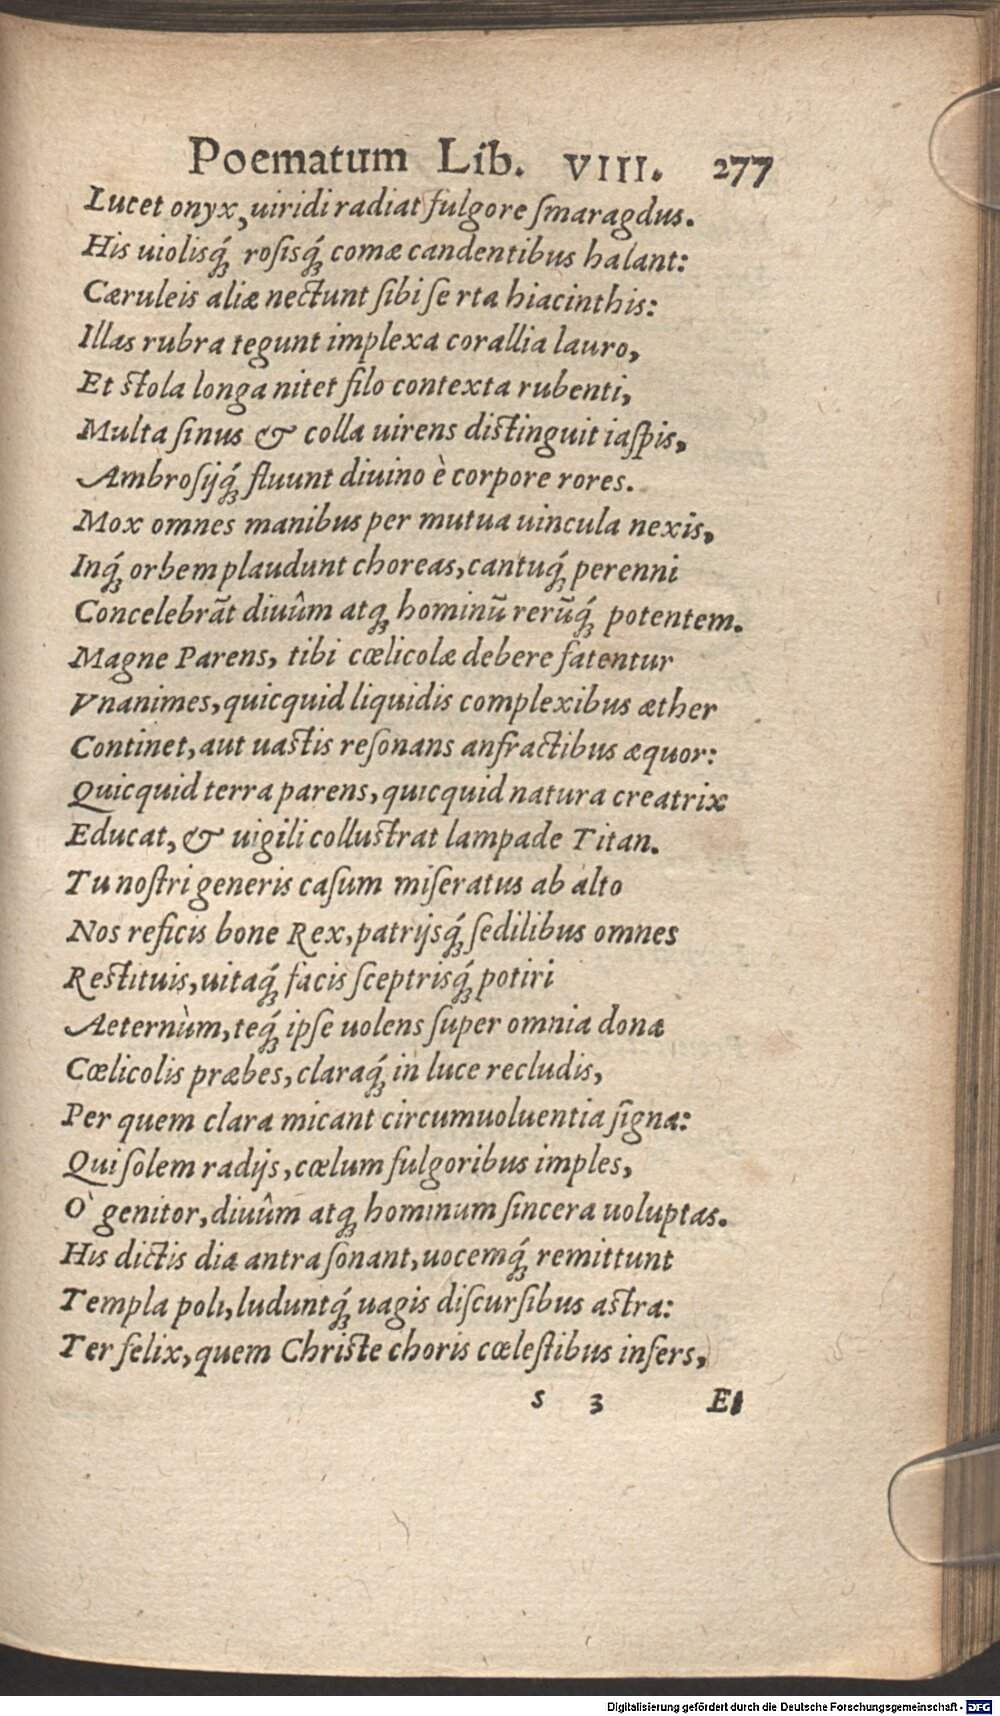 Poematum Lib. VIII. 277
Lucet onyx, uiridi radiat fulgore ſmaragdus.
His uiolisq́; roſisq́; comæ candentibus halant:
Cæruleis aliæ nectunt ſibi ſe rta hiacinthis:
Illas rubra tegunt implexa corallia lauro,
Et ſtola longa nitet filo contexta rubenti,
Multa ſinus & colla uirens diſtinguit iaſpis,
Ambroſijq́; fluunt diuino è corpore rores.
Mox omnes manibus per mutua uincula nexis,
Inq́; orbem plaudunt choreas, cantuq́; perenni
Concelebrãt diuûm atq; hominũ rerũq́; potentem.
Magne Parens, tibi cœlicolæ debere fatentur
Vnanimes, quicquid liquidis complexibus æther
Continet, aut uaſtis reſonans anfractibus æquor:
Quicquid terra parens, quicquid natura creatrix
Educat, & uigili colluſtrat lampade Titan.
Tu noſtri generis caſum miſeratus ab alto
Nos reficis bone Rex, patrijsq́; ſedilibus omnes
Reſtituis, uitaq́; facis ſceptrisq́; potiri
Aeternùm, teq́; ipſe uolens ſuper omnia dona
Cœlicolis præbes, claraq́; in luce recludis,
Per quem clara micant circumuoluentia ſigna:
Qui ſolem radijs, cœlum fulgoribus imples,
O` genitor, diuûm atq; hominum ſincera uoluptas.
His dictis dia antra ſonant, uocemq́; remittunt
Templa poli, luduntq́; uagis diſcurſibus aſtra:
Ter felix, quem Chriſte choris cœleſtibus inſers,
s 3 Et
Digitalisierung gefördert durch die Deutsche Forschungsgemeinschaft - DFG